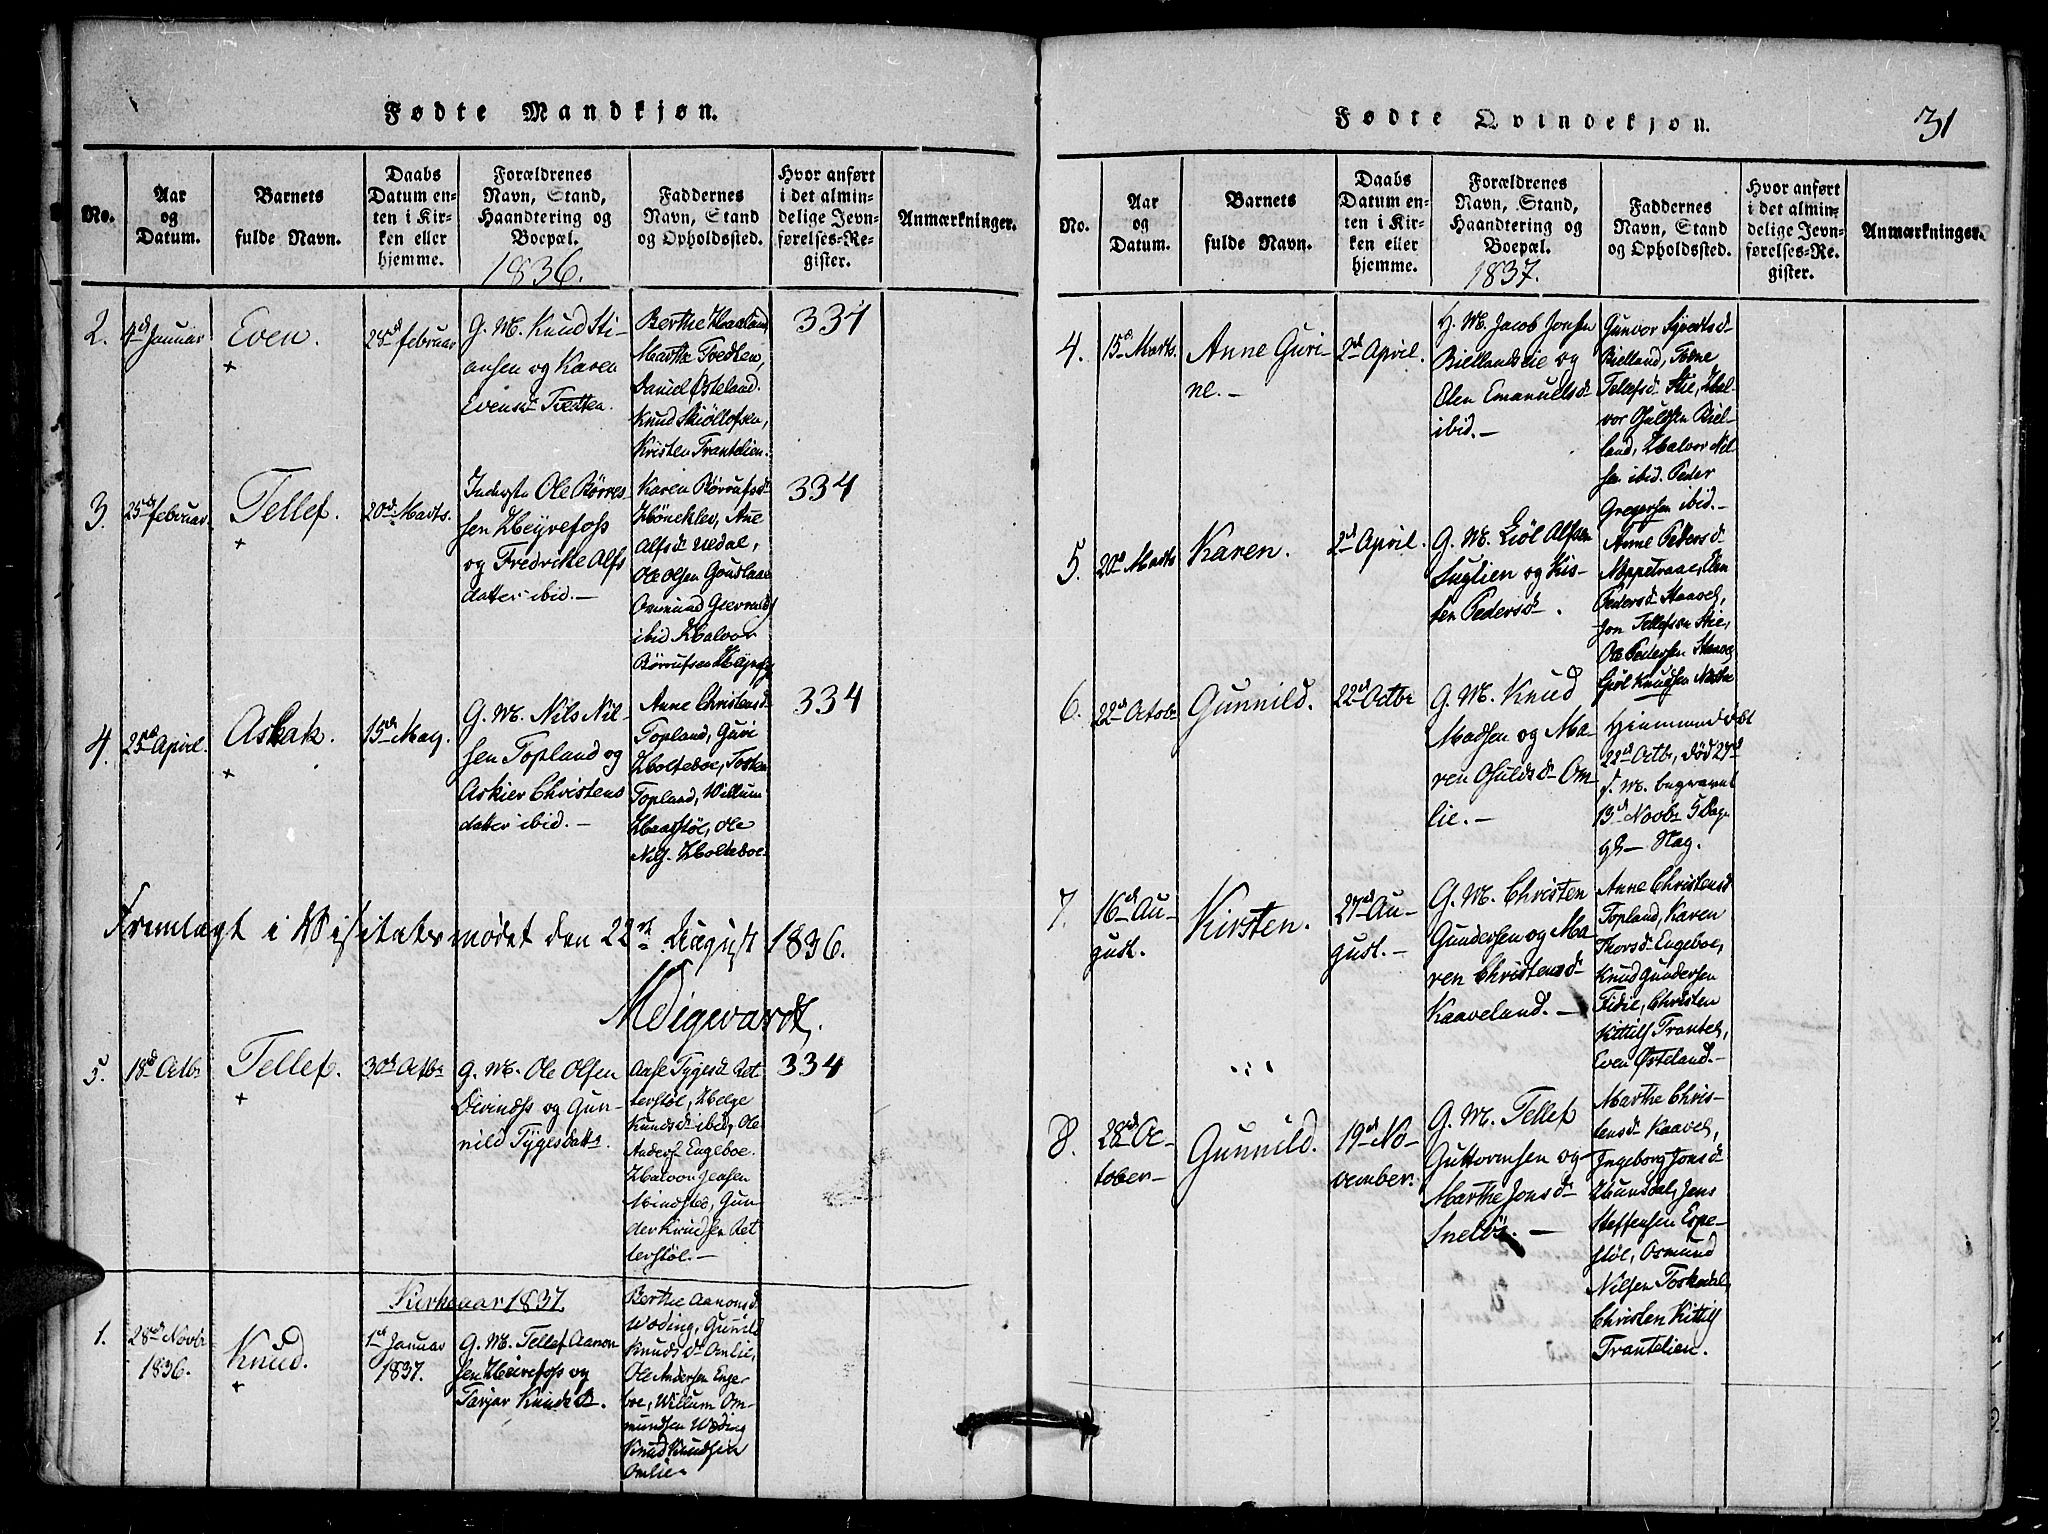 Fødte Mandkjøn.
No.
Aar
og
Datum.
Barnets
fulde Navn.
Daabs
Datum en-
ten i Kir-
ken eller
hjemme.
Forældrenes
Navn, Stand,
Haandtering og
Boepæl.
1836.
Faddernes
Navn, Stand
og Opholdssted.
Hvor anført
i det almin-
delige Jevn-
førelses-Re-
gister.
Anmærkninger.
2.
4de Januar
Even.
+
28de februar
G. M. Knud Sti-
ansen og Karen
Evensdr Tvedten.
Berthe Haaland,
Marthe Tvedten,
Daniel Østeland.
Knud Skiøllofsen,
Kristen Trantelien.
334
3.
25de februar
Tellef.
+
20de Marts.
Inderste Ole Børres-
sen Heyrefoss
og Fredrikke Alfs
datter ibid.—
Karen Børrufsdr
Hønekley, Ane
Alfsdr Uedal,
Ole Olsen
Ommund
ibid Halvor
Børrufsen
334
4.
25de April.
Aslak.
+
15de May.
G. M. Nils Nil-
sen Topland og
Askier Christens
datter ibid.—
Anne Christensdr
Topland, Guri
Holteboe, Tosten
Topland, Willum
Haarstøl, Ole
Nils. Holteboe.
334
Fremlagt i Visitatsmødet den 22de August 1836.
5.
18de Octbr
Tellef.
+
30de Octbr
G. M. Ole Olsen
Eivindss og Gun-
nild Tygesdattr.
Aase Tygesdr Ret-
terstøl, Helge
Knudsdr ibid, Ole
Anders. Engeboe.
Halvor Jensen
Mindstød, Gun-
der Knudsen Ret-
terstøl.—
334
Kirkeaar 1837.
1.
28de Novbr
1836.
Knud.
+
1ste Januar
1837.
G. M. Tellef Aanon-
sen Heirefoss og
Tarjær Knudsdr.
Berthe Aanonsdr
Woding, Gunild
Knudsdr Omlie,
Ole Andersen Enge-
boe, Willum Om-
mundsen Woding
Knud Knudsen
Omlie
Fødte Qvindekjøn.
31
No.
Aar
og
Datum.
Barnets
fulde Navn.
Daabs
Datum en-
ten i Kir-
ken eller
hjemme.
Forældrenes
Navn, Stand,
Haandtering og
Boepæl.
1837.
Faddernes
Navn, Stand
og Opholdssted.
Hvor anført
i det almin-
delige Jevn-
førelses-Re-
gister.
Anmærkninger.
4.
15de Marts.
Anne Guri-
ne.—
2den April.
H. M. Jacob Jonsen
Biellandseie og
Elen Emanuelsdr
ibid.—
Gunvor Syvertsdr
Bielland, Tone
Tellefsdr Stie, Hal-
vor Osuldsen Biel-
land, Halvor Nil-
sen ibid. Peder
Gregersen ibid.—
5.
20de Marts
Karen.
2den April.
G. M. Liøl Alfsen
Suglien og Kis-
ten Pedersdr.
Anne Pedersdr
Neppetraae,
Pedersdr Kaavel,
Jon Tellefsen Stie,
Ole Pedersen
Knudsen
6.
22de Octobr
Gunnild.
22de Octbr
G. M. Knud
Madsen og Ma-
ren Osuldsdr Om-
lie.—
Hjemmedøbt
22de Octbr, død 27de
s. M. begravet
13de Novbr 5 Dage
gl.—
7.
16de Au-
gust.
Kirsten.
27de Au-
gust.—
G. M. Christen
Gundersen og Ma-
ren Christensdr
Kaaveland.—
Anne Christensdr
Topland, Karen
Thorsdr Engeboe,
Knud Gundersen
Fidie, Christen
Kittils Trantel,
Even Østeland.—
8.
28de Oc-
tober—
Gunnild.
19de No-
vember.
G. M. Tellef
Guttormsen og
Marthe Jonsdr
Sneløs.—
Marthe Chris-
tensdr Kaavel,
Ingeborg Jonsdr
Hunsdal, Jens
Steffensen Espe-
støl, Osmund
Nilsen Toskedal,
Christen Kittils
Trantelien.